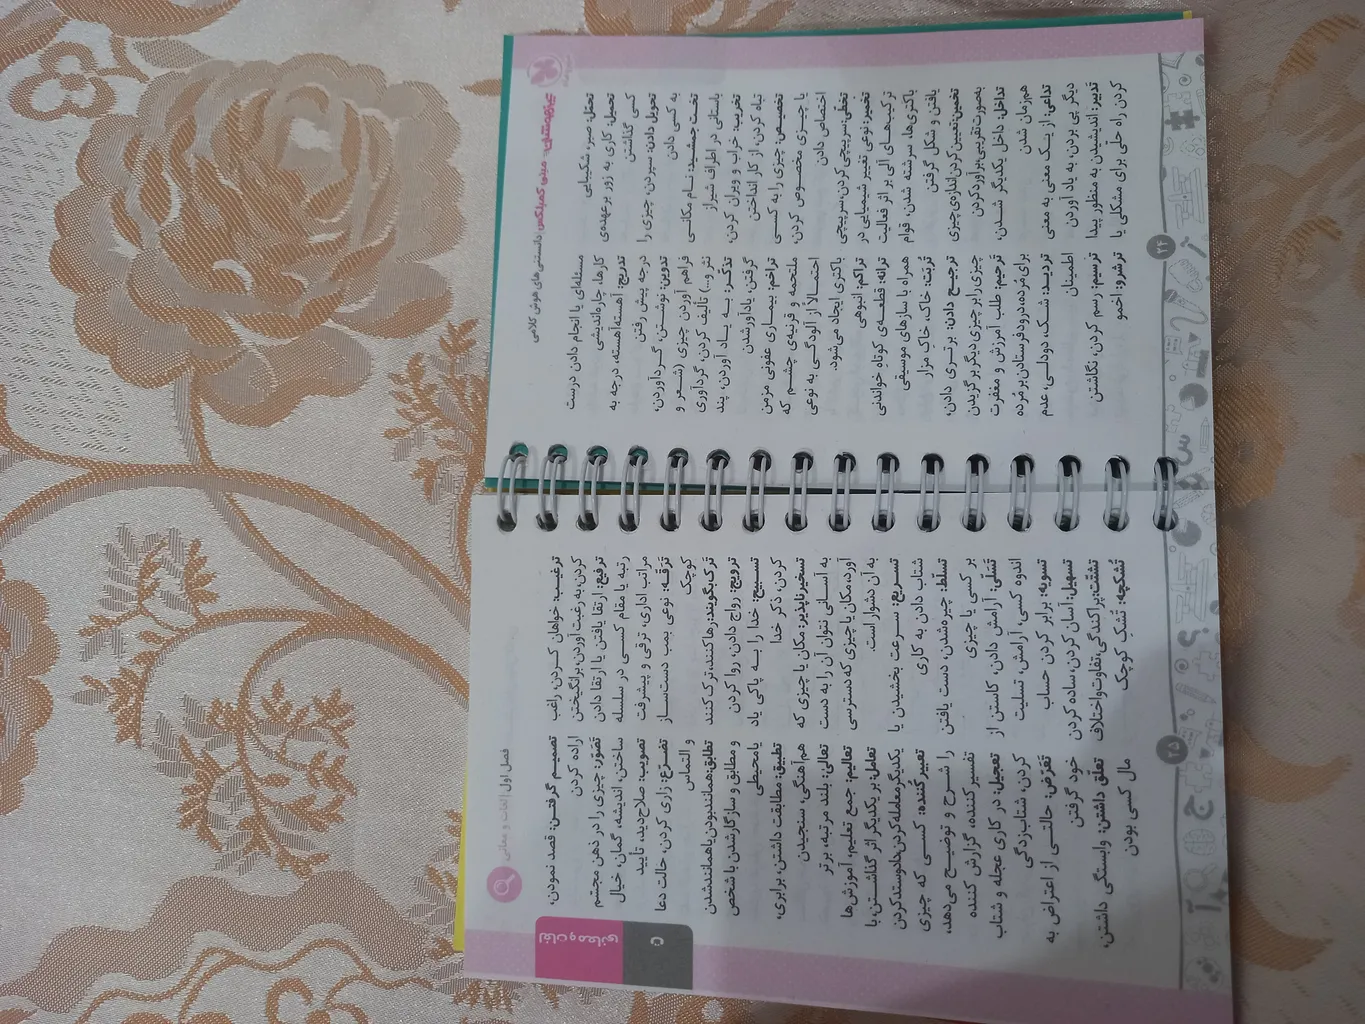 مینی کمپلکس دانستنی‌های هوش کلامی
تحمّل: صبر، شکیبایی
تحمیل: کاری به زور بر عهده‌ی
کسی گذاشتن
تحویل دادن: سپردن، چیزی را
به کسی دادن
تخت جمشید: نام مکانی
باستانی در اطراف شیراز
تخریب: خراب و ویران کردن،
تباه کردن، از کار انداختن
تخصیص: چیزی را به کسی
یا چیزی مخصوص کردن،
اختصاص دادن
تخطّی: سرپیچی کردن، سرپیچی
تخمیر: نوعی تغییر شیمیایی در
ترکیب‌های آلی بر اثر فعالیت
باکتری‌ها، سرشته شدن، قوام
یافتن و شکل گرفتن
تخمین: تعیین کردن اندازه‌ی چیزی
به‌صورت تقریبی، برآورد کردن
تداخل: داخل یکدیگر شدن،
هم‌زمان شدن
تداعی: از یک معنی به معنی
دیگر پی بردن، به یاد آوردن
تدبیر: اندیشیدن به منظور پیدا
کردن راه حلی برای مشکلی یا
مسئله‌ای یا انجام دادن درست
کارها، چاره‌اندیشی
تدریج: آهسته‌آهسته، درجه به
درجه پیش رفتن
تدوین: نوشتن، گردآوردن،
فراهم آوردن چیزی (شعر و
نثر و...) تألیف کردن، گردآوری
تذکّر: به یاد آوردن، پند
گرفتن، یادآور شدن
تراخم: بیماری عفونی مزمن
ملتحمه و قرنیه‌ی چشم که
احتمالاً از آلودگی به نوعی
باکتری ایجاد می‌شود.
تراکم: انبوهی
ترانه: قطعه‌ی کوتاهِ خواندنی
همراه با سازهای موسیقی
تربَت: خاک، خاکِ مزار
ترجیح دادن: برتری دادن،
چیزی را بر چیزی دیگر برگزیدن
ترحیم: طلب آمرزش و مغفرت
برای مُرده، درود فرستادن بر مُرده
تردید: شک، دودلی، عدم
اطمینان
ترسیم: رسم کردن، نگاشتن
ترشرو: اخمو
۲۴
فصل اول | لغات و معانی
ترغیب: خواهان کردن، راغب
کردن، به رغبت آوردن، برانگیختن
ترفیع: ارتقا یافتن یا ارتقا دادن
رتبه یا مقام کسی در سلسله
مراتب اداری، ترقی و پیشرفت
تَرَقّه: نوعی بمب دست‌ساز
کوچک
ترک بگویند: رها کنند، ترک کنند
ترویج: رواج دادن، روا کردن
تسبیح: خدا را به پاکی یاد
کردن، ذکر خدا
تسخیرناپذیر: مکان یا چیزی که
به آسانی نتوان آن را به دست
آورد، مکان یا چیزی که دسترسی
به آن دشوار است.
تسریع: سرعت بخشیدن یا
شتاب دادن به کاری
تسلّط: چیره شدن، دست یافتن
بر کسی یا چیزی
تسلّی: آرامش دادن، کاستن از
اندوه کسی، آرامش، تسلیت
تسویه: برابر کردن حساب
تسهیل: آسان کردن، ساده کردن
تشتّت: پراکندگی، تفاوت و اختلاف
تُشکچه: تُشکِ کوچک
تصمیم گرفتن: قصد نمودن،
اراده کردن
تصوّر: چیزی را در ذهن مجسّم
ساختن، اندیشه، گمان، خیال
تصویب: صلاح‌دید، تأیید
تضرّع: زاری کردن، حالت ادعا
و التماس
تطابق: همانند بودن یا همانند شدن
و مطابق و سازگار شدن با شخص
یا محیطی
تطبیق: مطابقت داشتن، برابری،
هم‌آهنگی، سنجیدن
تعالی: بلند مرتبه، برتر
تعالیم: جمع تعلیم، آموزش‌ها
تعامل: بر یکدیگر اثر گذاشتن، با
یکدیگر معامله کردن، دادوستد کردن
تعبیرکننده: کسی که چیزی
را شرح و توضیح می‌دهد،
تفسیرکننده، گزارش کننده
تعجیل: در کاری عجله و شتاب
کردن، شتاب‌زدگی
تعرّض: حالتی از اعتراض به
خود گرفتن
تعلّق داشتن: وابستگی داشتن،
مال کسی بودن
لغات و معانی
۵
۲۵